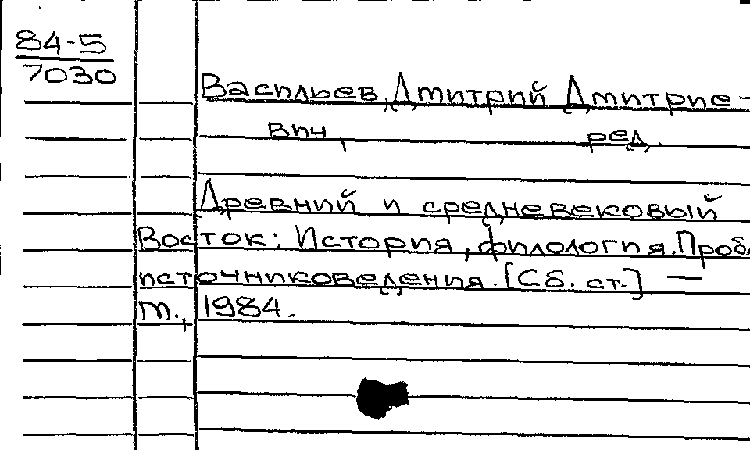 84-5
7030
Васильев, Дмитрий Дмитрие-
вич, ред.
Древний и средневековый
Восток: История, филология. Пробл.
источниковедения. [Сб. ст.] —
М., 1984.